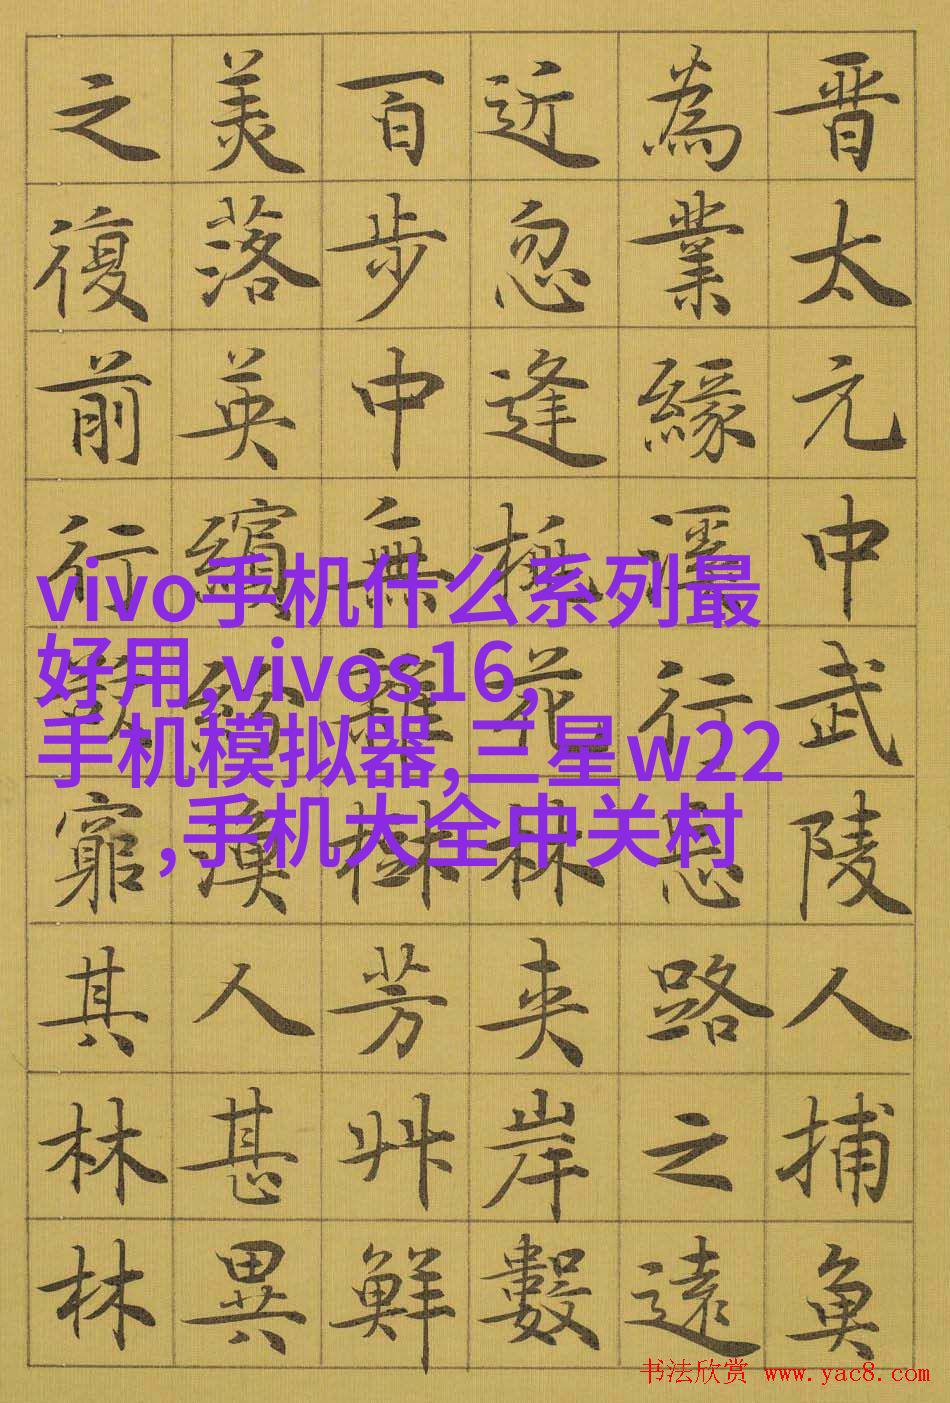 晋太元中武陵人捕魚
為業緣溪行忘路之遠
近忽逢桃花林夾岸數
百步中無雜樹芳艸鮮
美落英繽紛漁人甚異
之復前行欲窮其林林
vivo手机什么系列最
好用,vivos16,
手机模拟器,三星w22
,手机大全中关村
书法欣赏 www.yac8.com